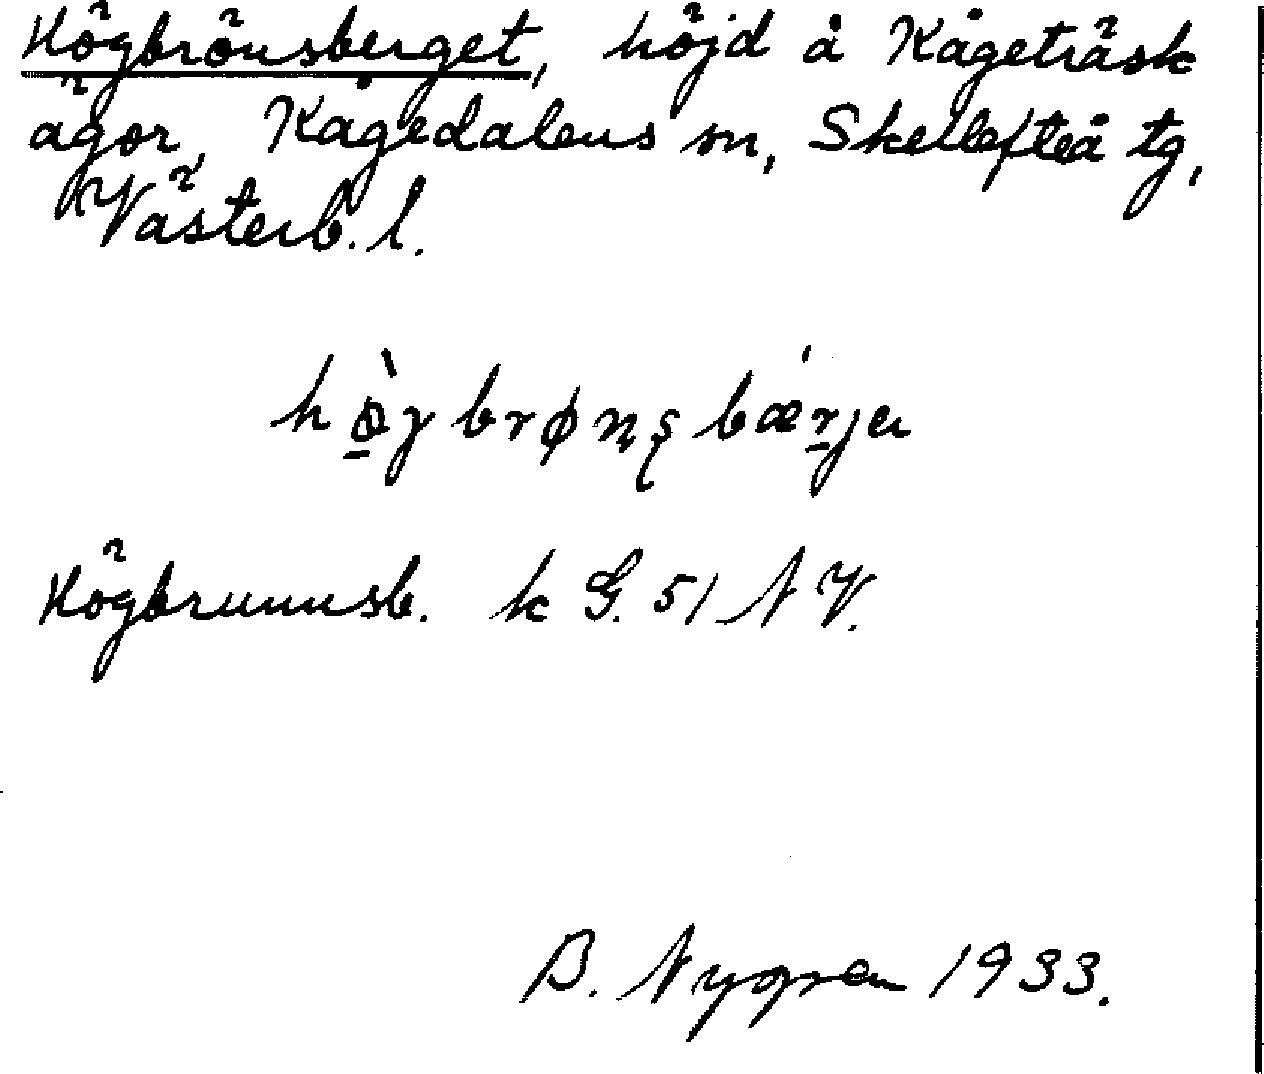 Högbrönsberget, höjd å Kågeträsk
ägor, Kågedalens sn, Skellefteå tg,
Västerb. l.
Högbrunnsb. k G. 51 N V.
B. Nygren 1933.